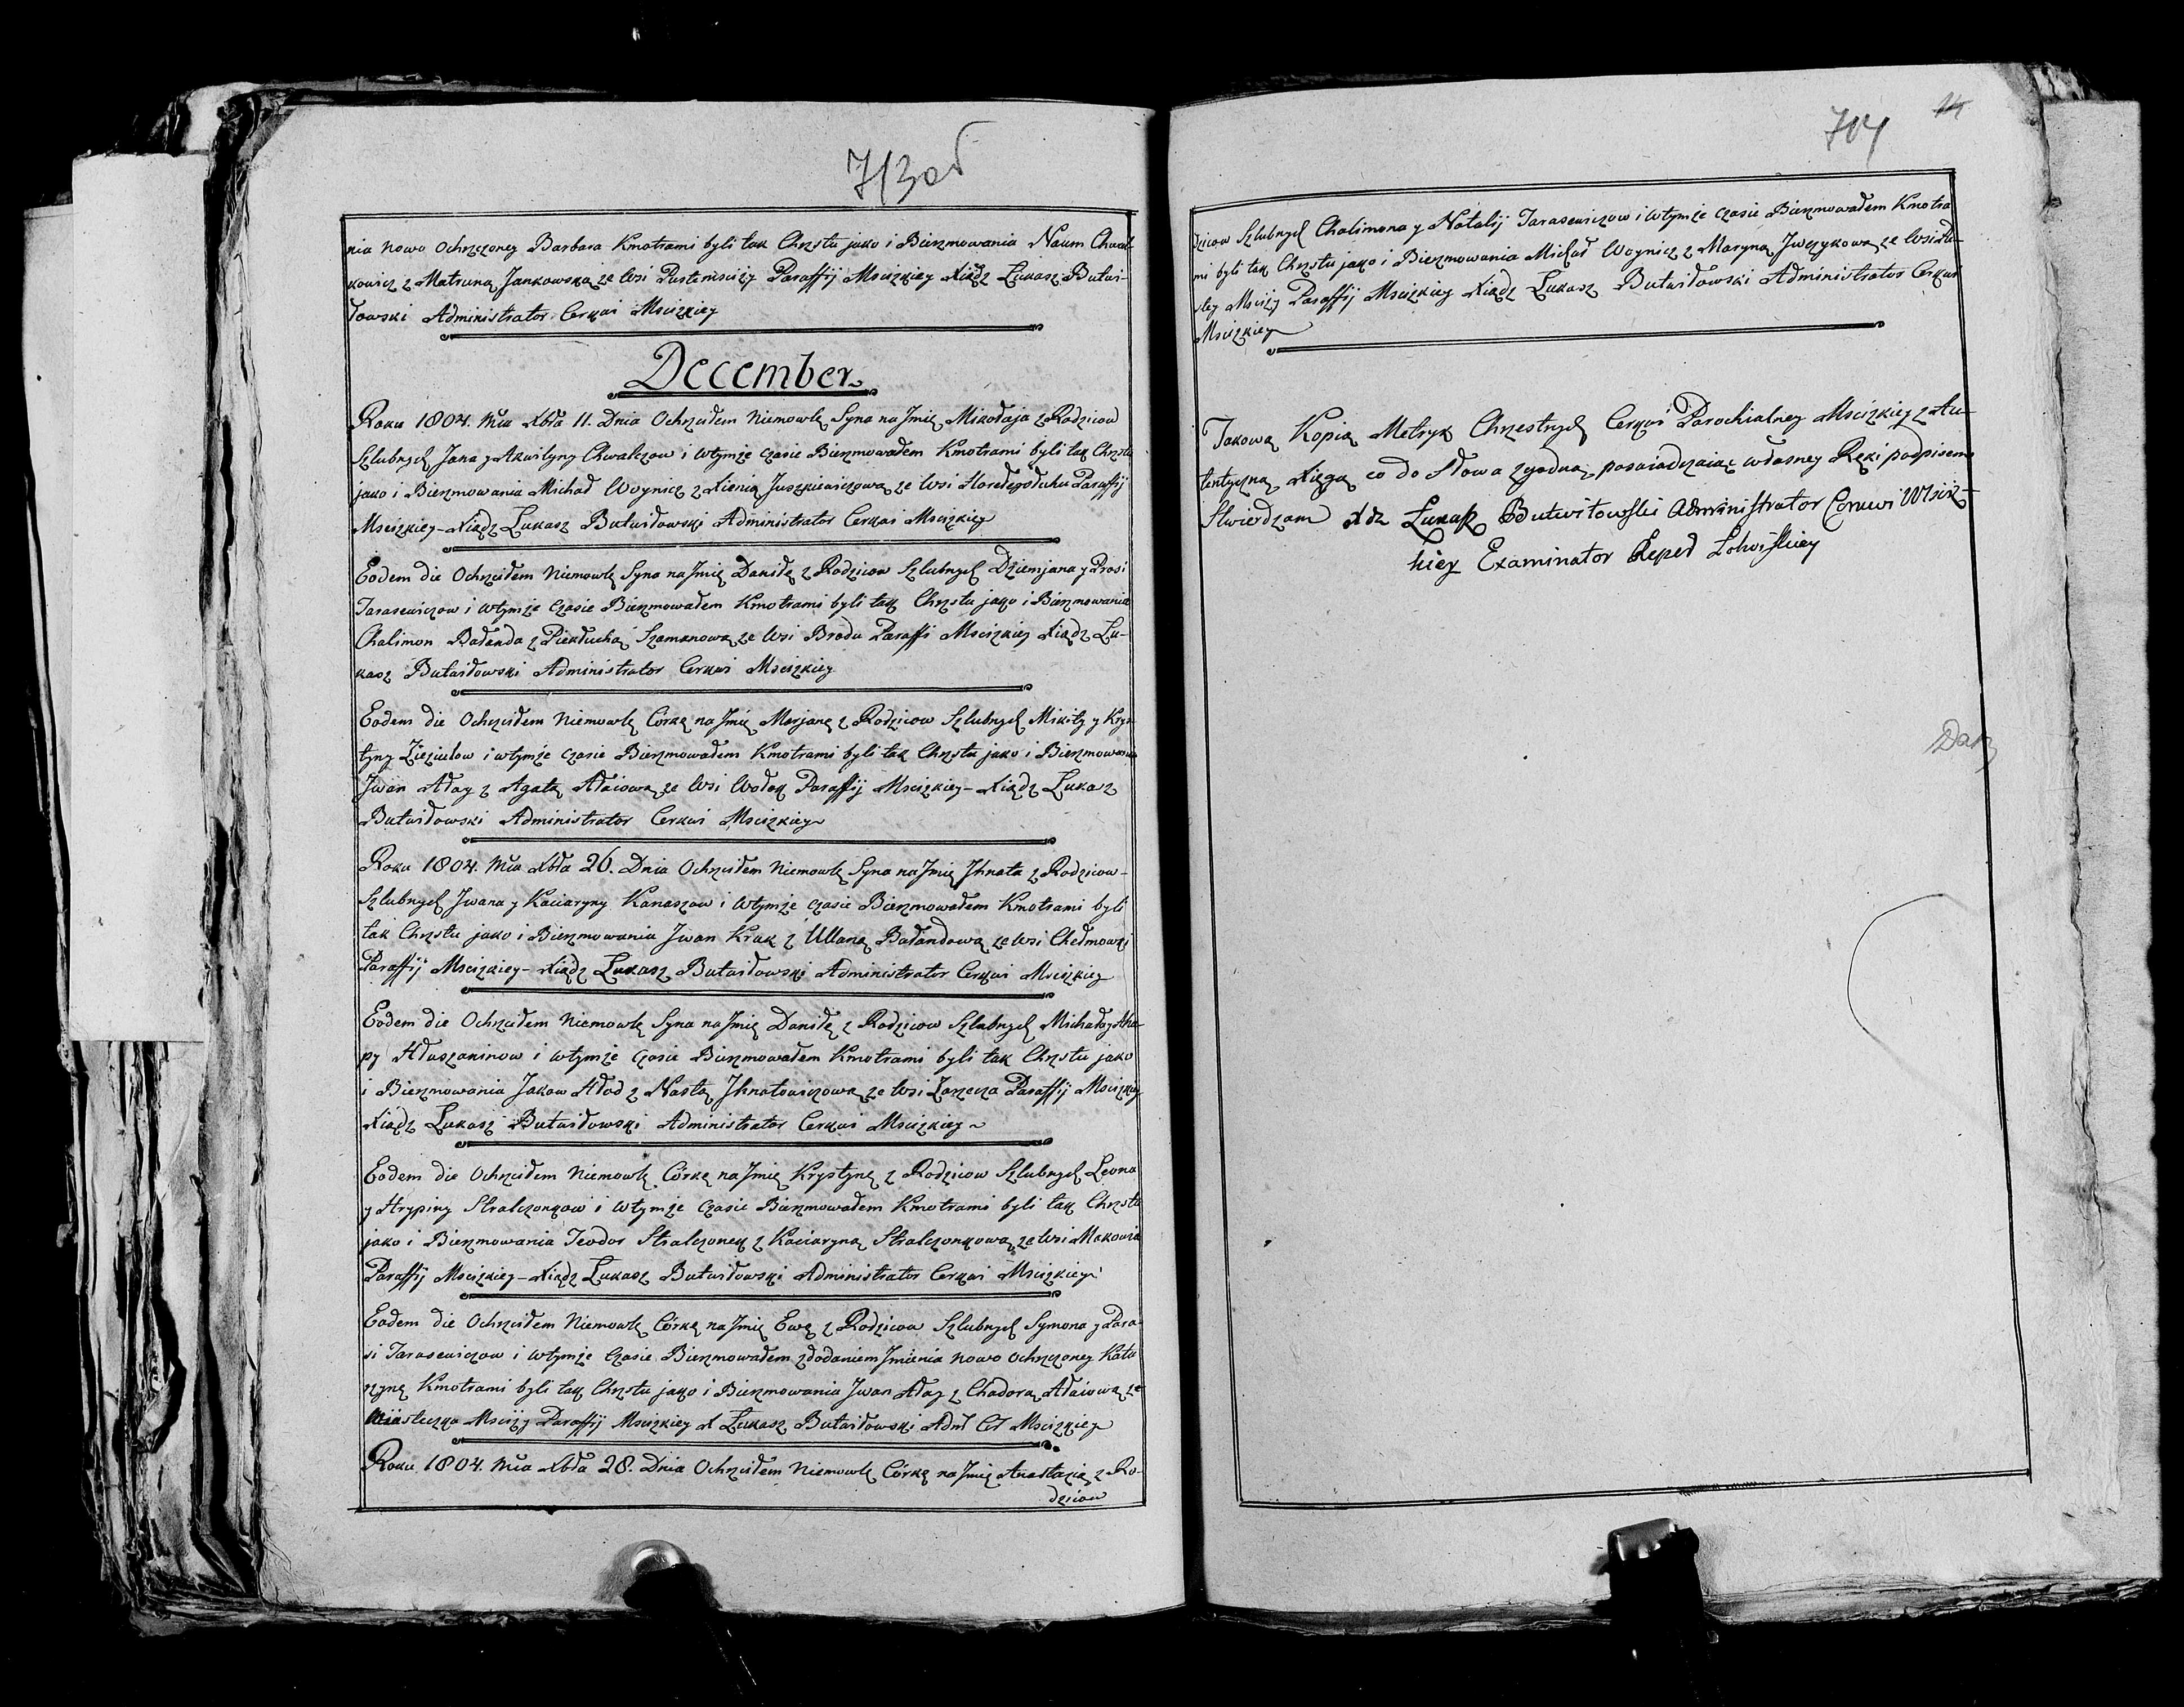 713об
nia Nowo Ochrzczoney Barbara Kmotrami byli tak Chrztu jako i Bierzmowania Naum Chwal-
kowicz z Matruną Jankowską ze Wsi Pustemsciży Paraffij Mscizkiey Xiądz Łukasz Butwi-
łowski Administrator Cerkwi Mscizkiey
December
Roku 1804. Mca Xbra 11. Dnia Ochrzciłem Niemowle Syna na Jmie Mikołaja z Rodzicow
Szlubnych Jana y Akwiliny Chwalczow i wtymże czasie Bierzmowałem Kmotrami byli tak Chrztu
jako i Bierzmowania Michał Woynicz z Xienią Juszkiewiczową ze Wsi Paraffij
Mscizkiey - Xiądz Łukasz Butwiłowski Administrator Cerkwi Mscizkiey
Eodem die Ochrzciłem Niemowle Syna na Jmie Daniłę z Rodzicow Szlubnych Dziemjana y Prosi
Tarasewiczow i wtymże czasie Bierzmowałem Kmotrami byli tak Chrztu jako i Bierzmowania
Chalimon Bałanda z Piekłuchą Szamanową ze Wsi Brodu Paraffi Mscizkiey Xiądz Łu-
kasz Butwiłowski Administrator Cerkwi Mscizkiey
Eodem die Ochrzciłem Niemowle Córkę na Jmie Marjanę z Rodzicow Szlubnych Mikity y Krys-
tyny Zieziulow i wtymże czasie Bierzmowałem Kmotrami byli tak Chrztu jako i Bierzmowania
Jwan Aday z Agatą Adaiową ze Wsi Wołok Paraffij Mscizkiey - Xiądz Łukasz
Butwiłowski Administrator Cerkwi Mscizkiey
Roku 1804. Mca Xbra 26. Dnia Ochrzciłem Niemowle Syna na Jmie Jhnata z Rodzicow
Szlubnych Jwana y Kaciaryny Kanaszow i wtymże czasie Bierzmowałem Kmotrami byli
tak Chrztu jako i Bierzmowania Jwan Kruk z Ullaną Bałandową ze Wsi Chełmowki
Paraffij Mscizkiey - Xiądz Łukasz Butwiłowski Administrator Cerkwi Mscizkiey
Eodem die Ochrzciłem Niemowle Syna na Jmie Daniłę z Rodzicow Szlubnych Michała y Aha-
py Hłuszaninow i wtymże czasie Bierzmowałem Kmotrami byli tak Chrztu jako
i Bierzmowania Jakow Hłod z Nastą Jhnatowiczową ze Wsi Zarzecza Paraffij Mscizkiey
Xiądz Łukasz Butwiłowski Administrator Cerkwi Mscizkiey
Eodem die Ochrzciłem Niemowle Córkę na Jmie Krystynę z Rodzicow Szlubnych Leona
y Hrypiny Stralczonkow i wtymże czasie Bierzmowałem Kmotrami byli tak Chrztu
jako i Bierzmowania Teodor Stralczonek z Kaciaryną Stralczonkową ze Wsi Makowia
Paraffij Mscizkiey - Xiądz Łukasz Butwiłowski Administrator Cerkwi Mscizkiey
Eodem die Ochrzciłem Niemowle Córkę na Jmie Ewę z Rodzicow Szlubnych Symona y Para-
si Tarasewiczow i wtymże Czasie Bierzmowałem z dodaniem Jmienia nowo Ochrzczoney Kata
rzynę Kmotrami byli tak Chrztu jako i Bierzmowania Jwan Aday z Chadorą Adaiową ze
Miasteczka Msciży Paraffij Mscizkiey X Łukasz Butwiłowski Admr Cer Mscizkiey
Roku 1804. Mca Xbra 28. Dnia Ochrzciłem Niemowle Córkę na Jmie Anastazią z Ro-
dzicow
14
704
dzicow Szlubnych Chalimona y Natalij Tarasewiczow i wtymże czasie Bierzmowałem Kmotra
mi byli tak Chrztu jako i Bierzmowania Michał Woynicz z Maryną Jwczykową ze Wsi
Msciży Paraffij Mscizkiey Xiądz Łukasz Butwiłowski Administrator Cerkwi
Mscizkiey
Takową Kopią Metryk Chrzestnych Cerkwi Parochialney Mscizkiey z Au-
tentyczną Xięgą co do Słowa zgodną, poswiadczaiąc własney Ręki podpisem
Stwierdzam Xdz Łukasz Butwiłowski Administrator Cerkwi Mściz-
kiey Examinator